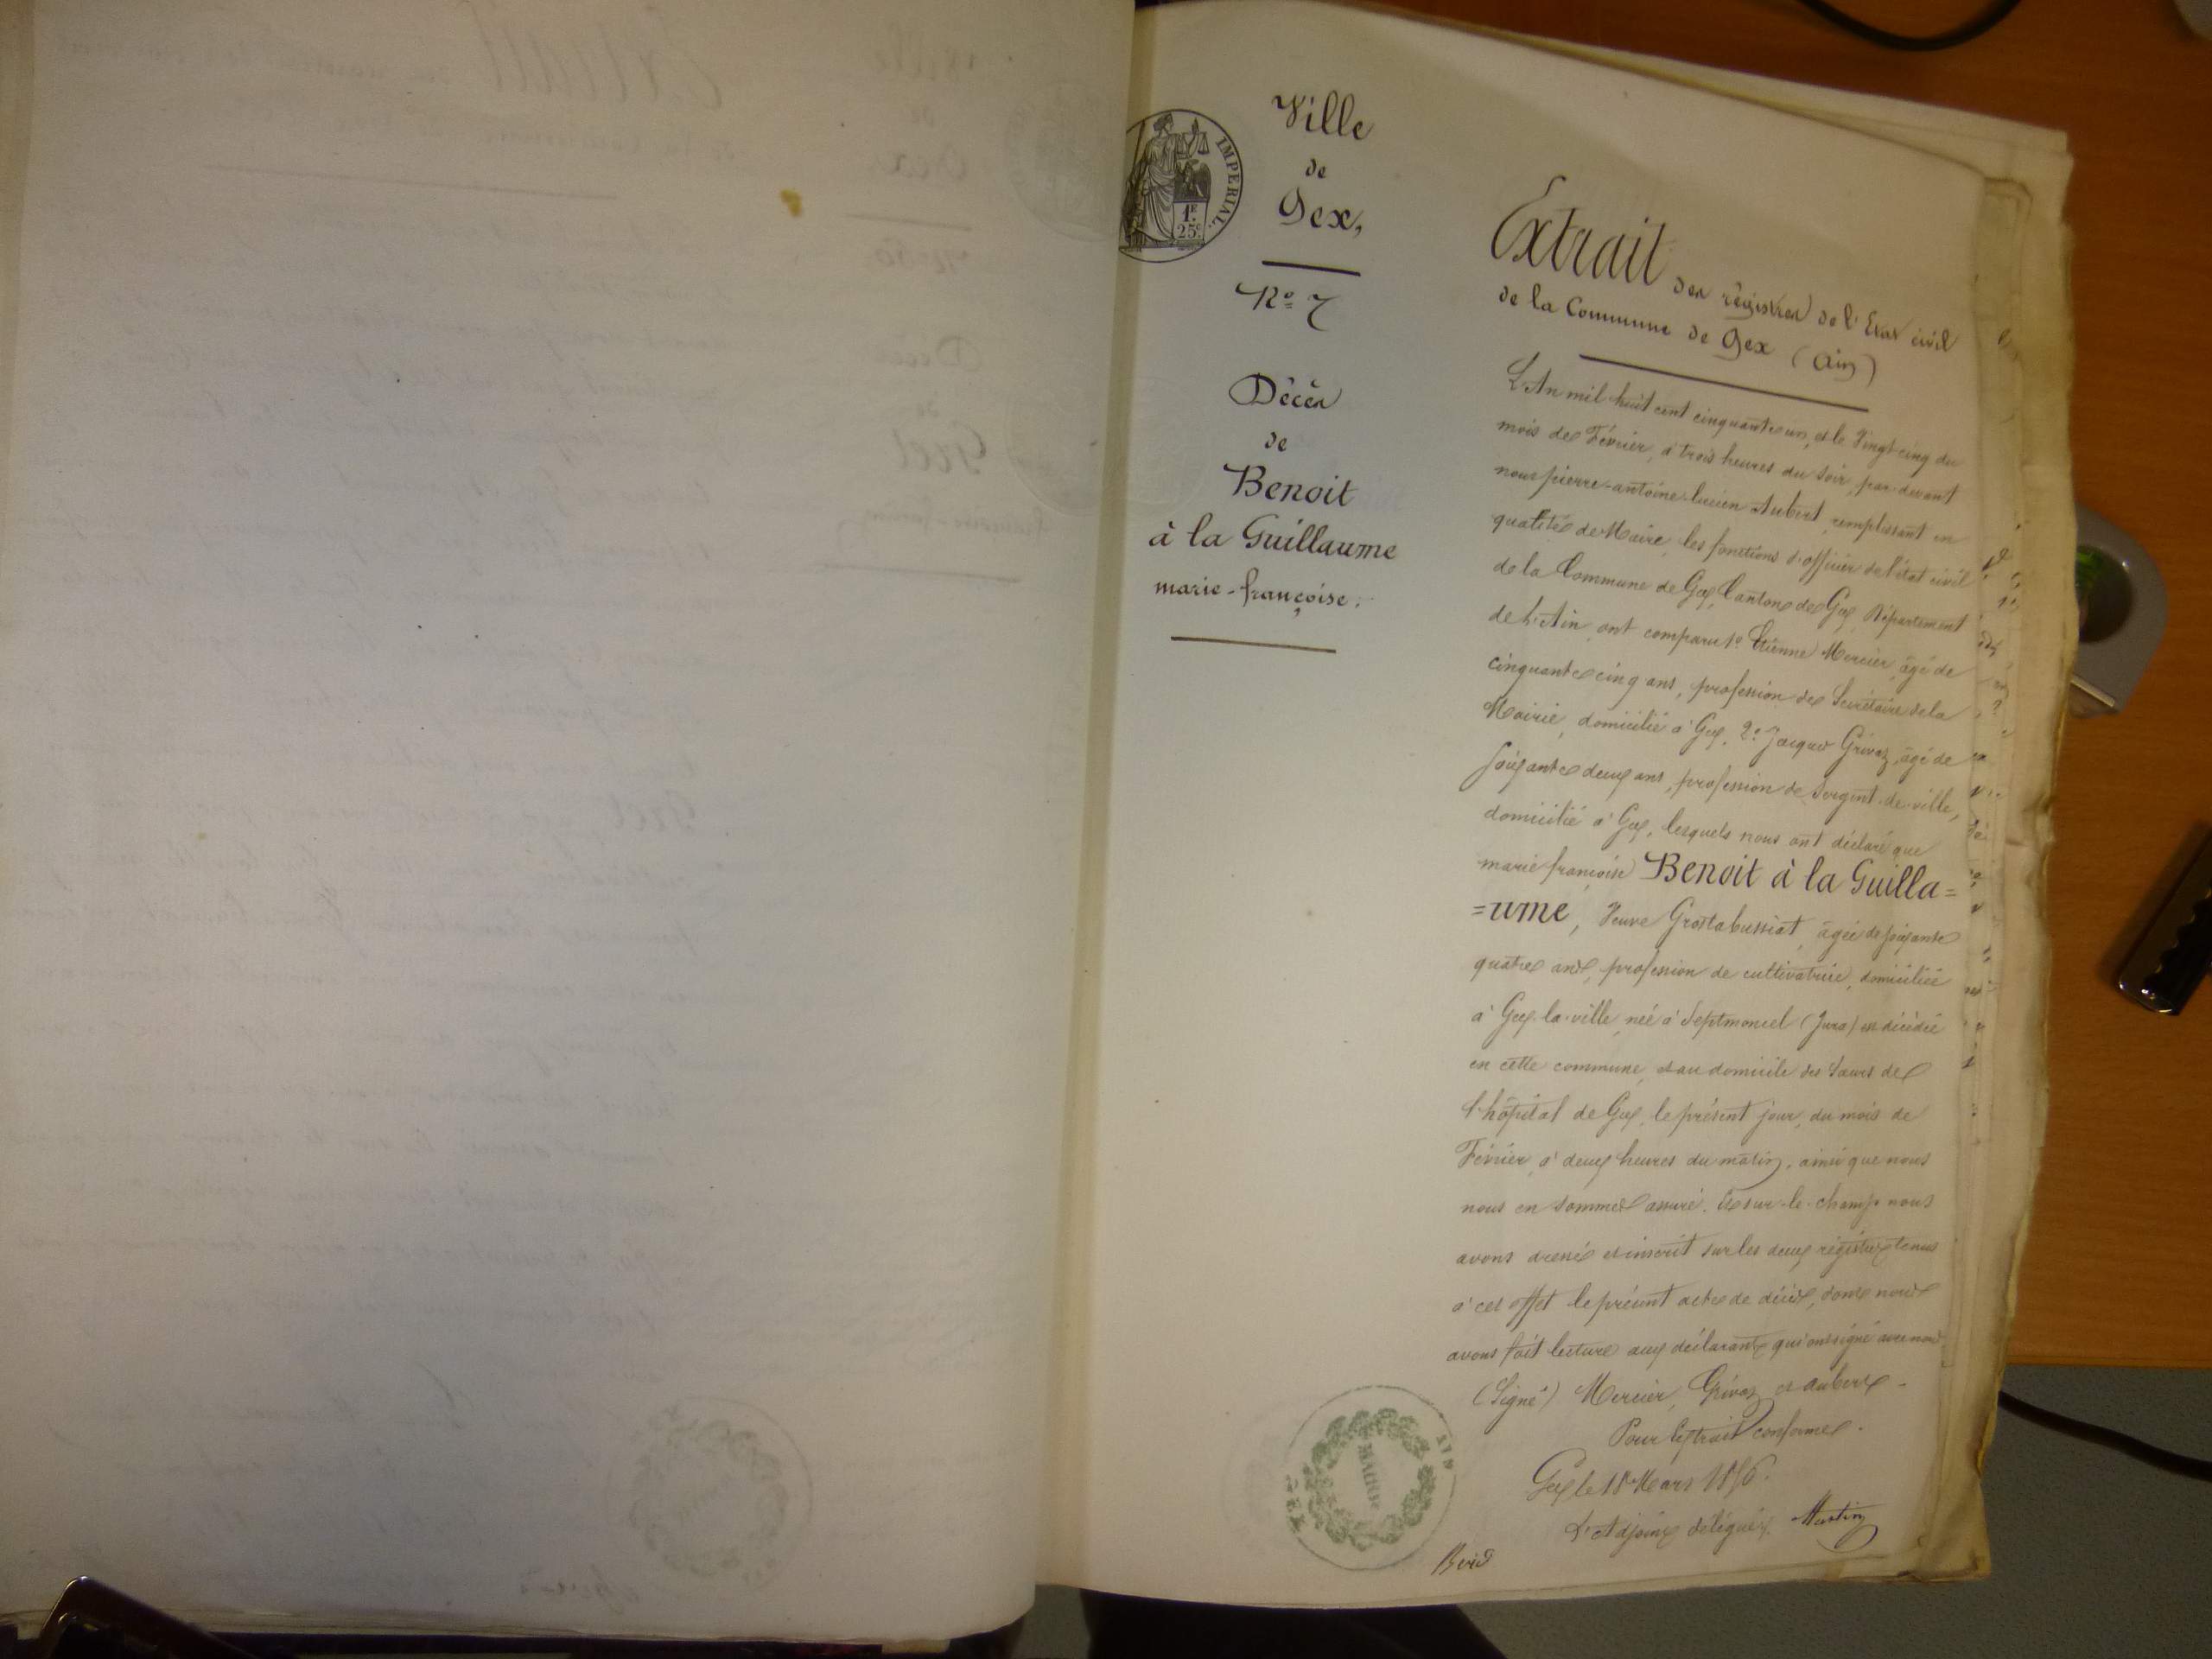 IMPERIAL.
1F.
25c.
Ville
de
Gex,
No 7
Décès
de
Benoit
à la Guillaume
marie-françoise.
Extrait des régistres de l'Etat civil
de la Commune de Gex (Ain)
L'An mil huit cent cinquante un, et le Vingt cinq du
mois de Février, à trois heures du soir, par-devant
nous pierre-antoine-lucien Aubert, remplissant en
qualité de Maire, les fonctions d'officier de l'état civil
de la Commune de Gex, Canton de Gex, Département
de l'Ain, ont comparu 1o Etienne Mercier, âgé de
cinquante cinq ans, profession de Secrétaire de la
Mairie, domicilié à Gex, 2o Jacques Grivaz, âgé de
soixante deux ans, profession de Sergent-de-ville,
domicilié à Gex, lesquels nous ont déclaré que
marie françoise Benoit à la Guilla=
=ume, Veuve Grostabussiat, âgée de soixante
quatre ans, profession de cultivatrice, domiciliée
à Gex-la-ville, née à Septmoncel (Jura) est décédée
en cette commune, et au domicile des Sœurs de
l'hôpital de Gex, le présent jour, du mois de
Février, à deux heures du matin, ainsi que nous
nous en sommes assuré. Et sur-le-champ nous
avons dressé et inscrit sur les deux régistres tenus
à cet effet le présent acte de décès, dont nous
avons fait lecture aux déclarants qui ont signé avec nous
(Signé) Mercier, Grivaz et Aubert -
Pour Extrait conforme.
Gex le 18 Mars 1856.
L'Adjoint délégué, Martin
MAIRIE
GEX
AIN